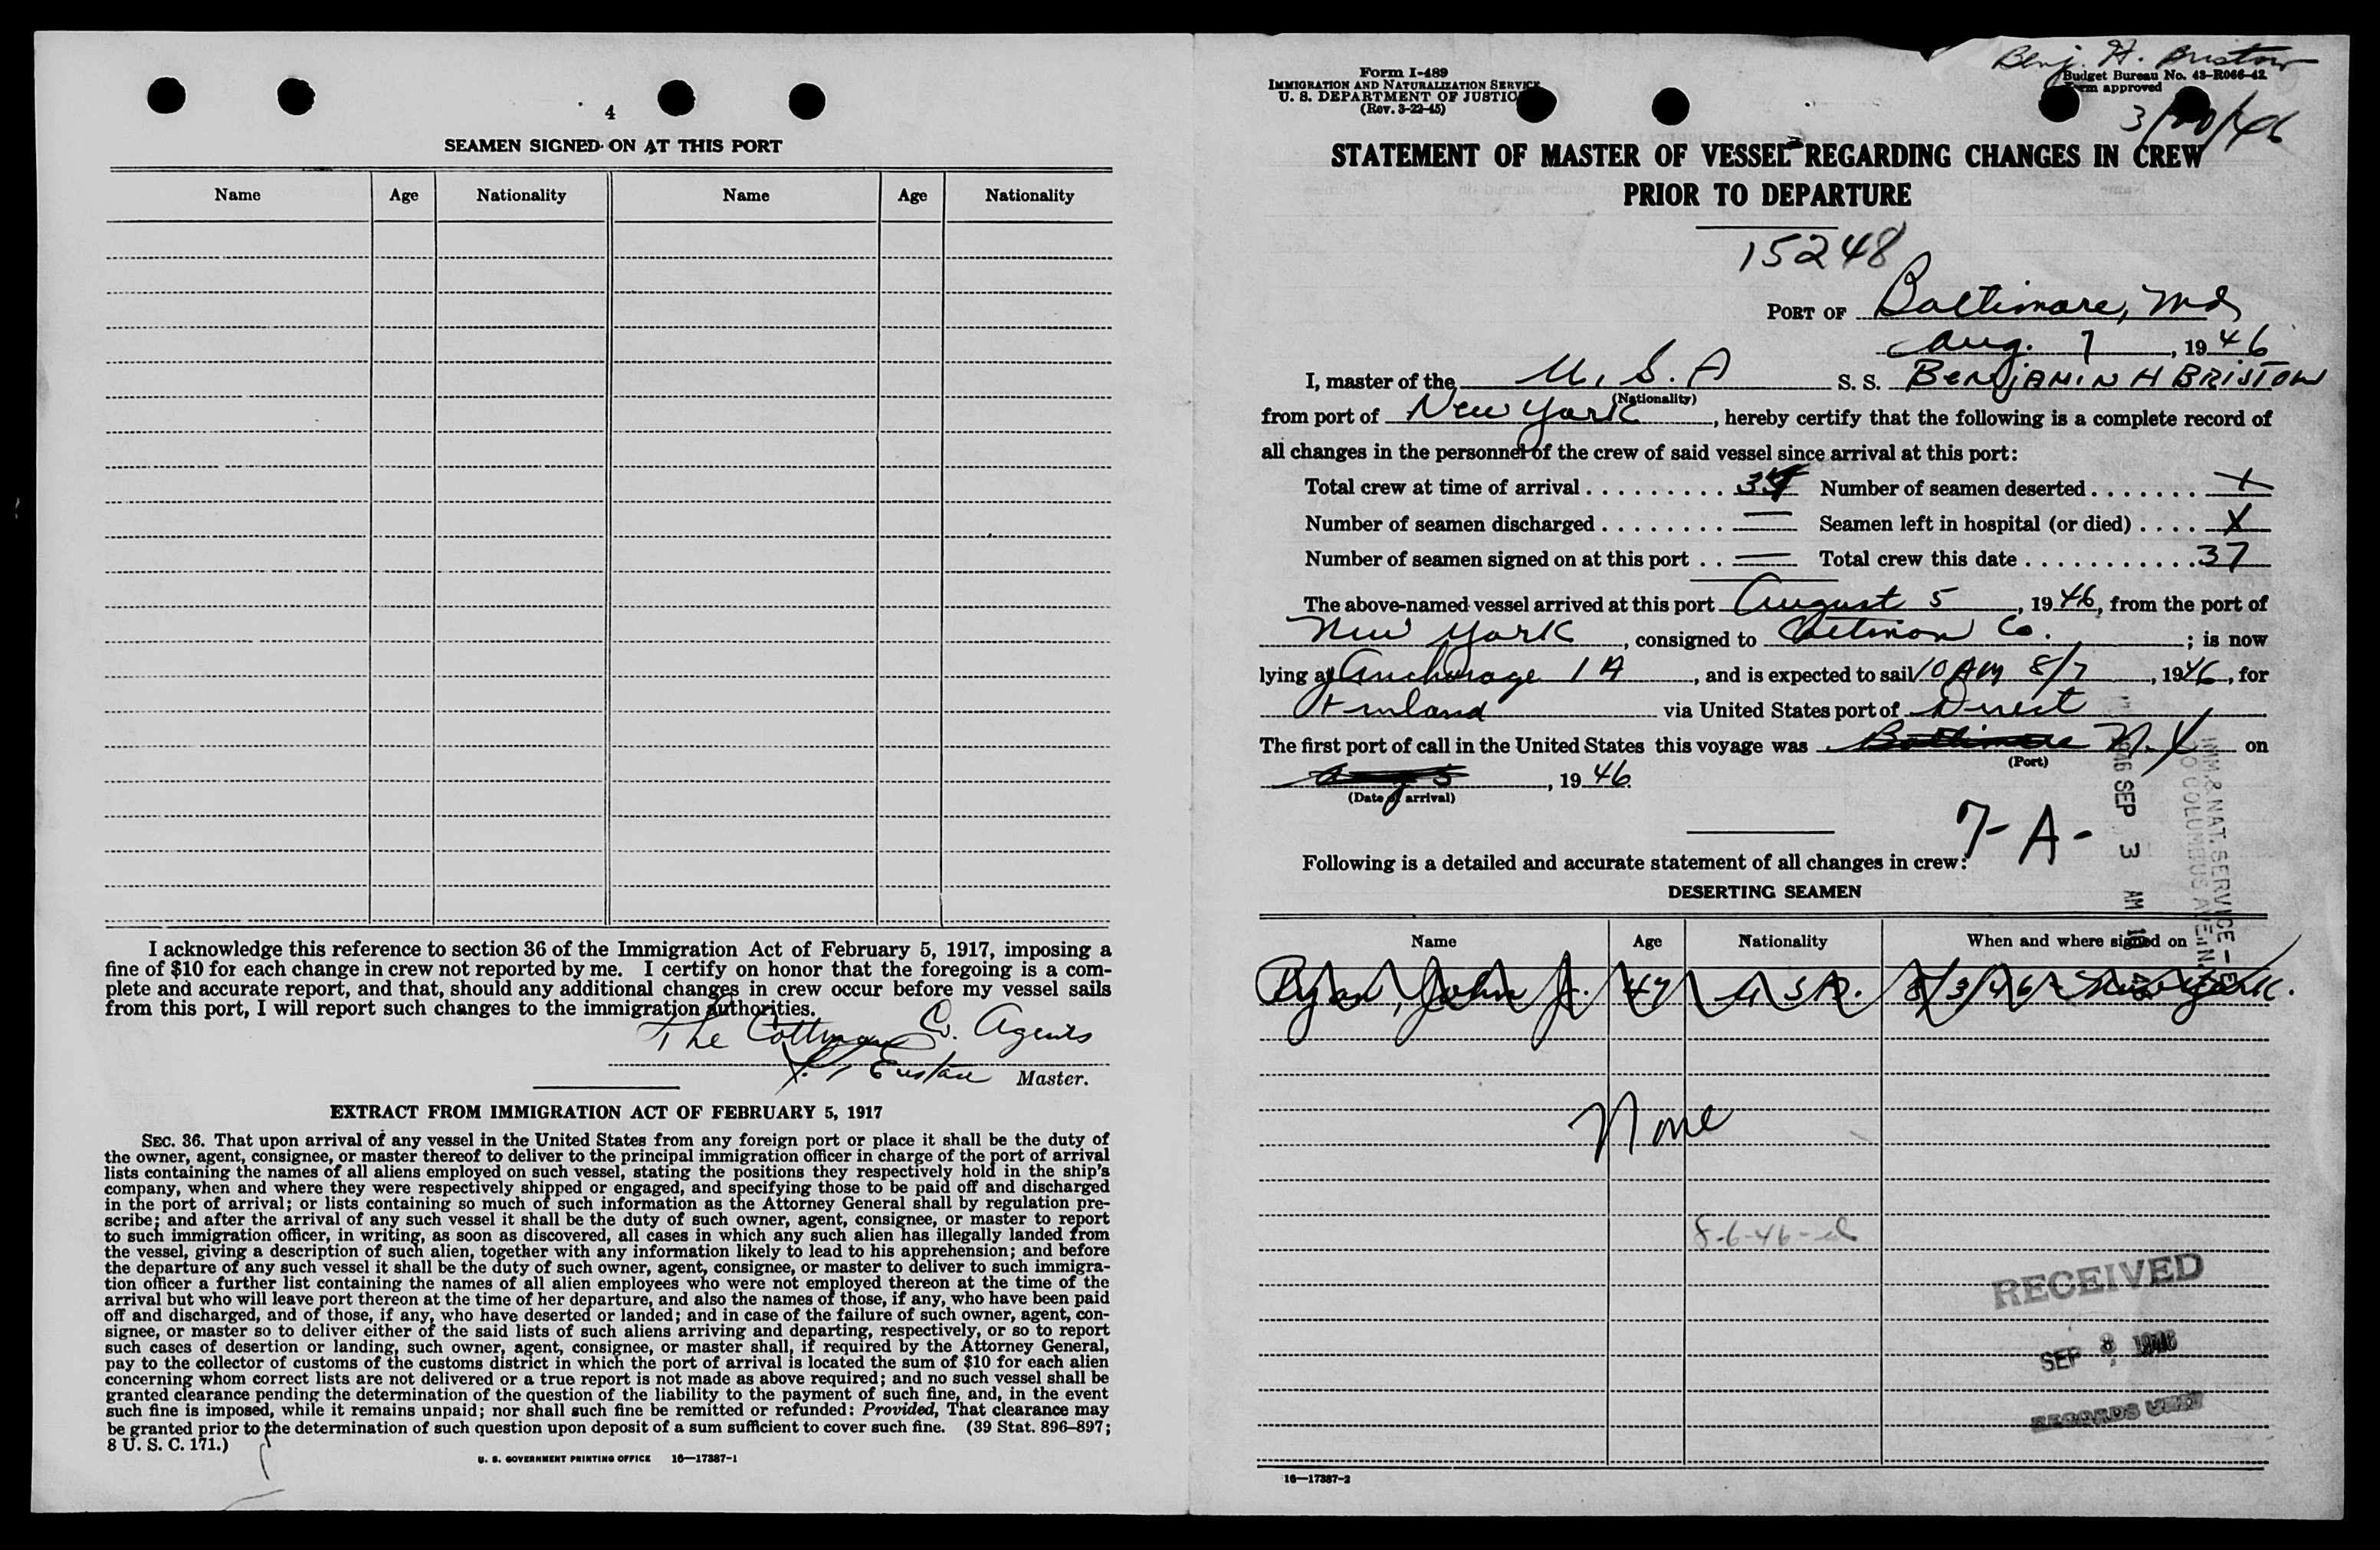 4
SEAMEN SIGNED ON AT THIS PORT
Name Age Nationality Name Age Nationality
I acknowledge this reference to section 36 of the Immigration Act of February 5, 1917, imposing a
fine of $10 for each change in crew not reported by me. I certify on honor that the foregoing is a com-
plete and accurate report, and that, should any additional changes in crew occur before my vessel sails
from this port, I will report such changes to the immigration authorities.
The Cottman Co. Agents
Eustace Master.
EXTRACT FROM IMMIGRATION ACT OF FEBRUARY 5, 1917
SEC. 36. That upon arrival of any vessel in the United States from any foreign port or place it shall be the duty of
the owner, agent, consignee, or master thereof to deliver to the principal immigration officer in charge of the port of arrival
lists containing the names of all aliens employed on such vessel, stating the positions they respectively hold in the ship's
company, when and where they were respectively shipped or engaged, and specifying those to be paid off and discharged
in the port of arrival; or lists containing so much of such information as the Attorney General shall by regulation pre-
scribe; and after the arrival of any such vessel it shall be the duty of such owner, agent, consignee, or master to report
to such immigration officer, in writing, as soon as discovered, all cases in which any such alien has illegally landed from
the vessel, giving a description of such alien, together with any information likely to lead to his apprehension; and before
the departure of any such vessel it shall be the duty of such owner, agent, consignee, or master to deliver to such immigra-
tion officer a further list containing the names of all alien employees who were not employed thereon at the time of the
arrival but who will leave port thereon at the time of her departure, and also the names of those, if any, who have been paid
off and discharged, and of those, if any, who have deserted or landed; and in case of the failure of such owner, agent, con-
signee, or master so to deliver either of the said lists of such aliens arriving and departing, respectively, or so to report
such cases of desertion or landing, such owner, agent, consignee, or master shall, if required by the Attorney General,
pay to the collector of customs of the customs district in which the port of arrival is located the sum of $10 for each alien
concerning whom correct lists are not delivered or a true report is not made as above required; and no such vessel shall be
granted clearance pending the determination of the question of the liability to the payment of such fine, and, in the event
such fine is imposed, while it remains unpaid; nor shall such fine be remitted or refunded: Provided, That clearance may
be granted prior to the determination of such question upon deposit of a sum sufficient to cover such fine. (39 Stat. 896–897;
8 U. S. C. 171.)
U. S. GOVERNMENT PRINTING OFFICE 16—17387-1
Benj. H. Bristow
Form I-489
IMMIGRATION AND NATURALIZATION SERVICE
U. S. DEPARTMENT OF JUSTICE
(Rev. 3-22-45)
Budget Bureau No. 43-R066-42
Form approved
STATEMENT OF MASTER OF VESSEL REGARDING CHANGES IN CREW
PRIOR TO DEPARTURE
15248
PORT OF Baltimore, Md
Aug. 7, 1946
I, master of the U.S.A S. S. BENJAMIN H BRISTOW
(Nationality)
from port of New York, hereby certify that the following is a complete record of
all changes in the personnel of the crew of said vessel since arrival at this port:
Total crew at time of arrival . . . . . . . . . Number of seamen deserted . . . . . . . X
Number of seamen discharged . . . . . . . . — Seamen left in hospital (or died) . . . . X
Number of seamen signed on at this port . . — Total crew this date . . . . . . . . . . . 37
The above-named vessel arrived at this port August 5, 1946, from the port of
New York, consigned to Cottman Co.; is now
lying at Anchorage 1A, and is expected to sail 10 AM 8/7, 1946, for
Finland via United States port of Direct
The first port of call in the United States this voyage was Baltimore N.Y on
(Port)
Aug 5, 1946
(Date of arrival)
7-A-
Following is a detailed and accurate statement of all changes in crew:
DESERTING SEAMEN
Name Age Nationality When and where signed on
Ryan, John J. 47 U S A. 8/3/46 New York.
None
8-6-46-
RECEIVED
SEP 8 1946
RECORDS UNIT
16—17387-2
1946 SEP 3 AM 10
IMM. & NAT. SERVICE
COLUMBUS AVE. N.Y.